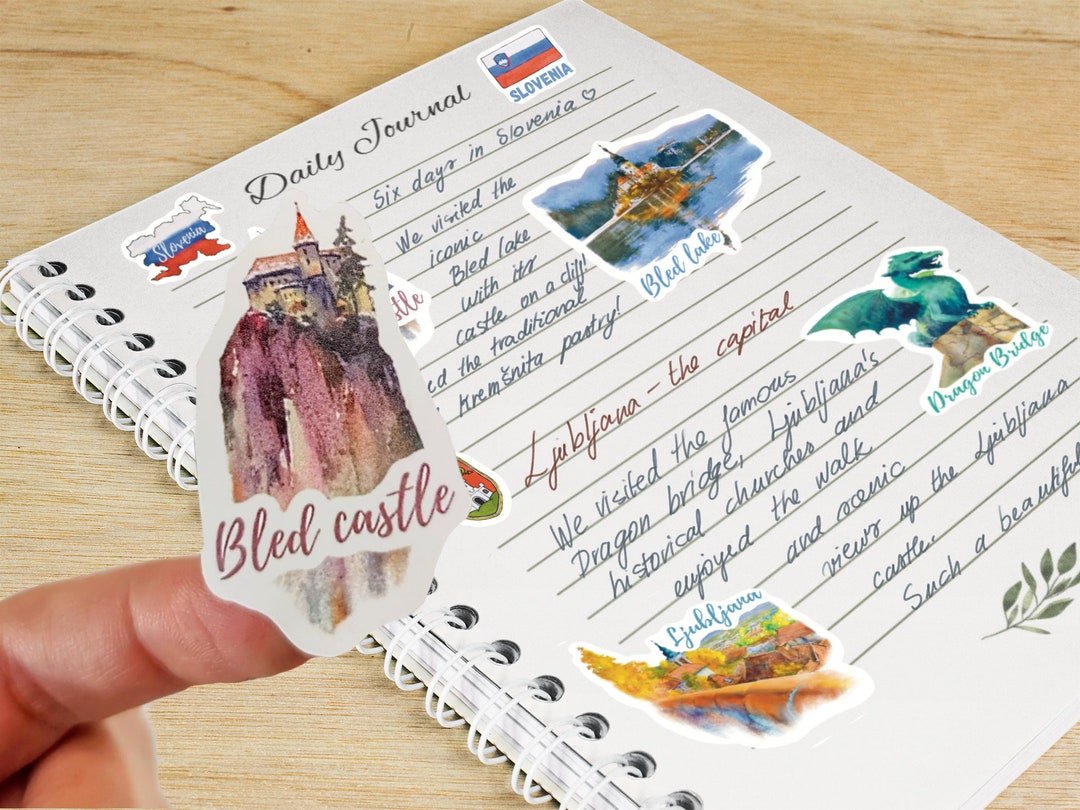 SLOVENIA
Daily Journal
Slovenia
Six days in Slovenia ♡
We visited the
iconic
Bled lake
with its
castle on a cliff!
ed the traditional
Kremšnita pastry!
Bled lake
stle
Bled castle
Ljubljana - the capital
Dragon Bridge
We visited the famous
Dragon bridge, Ljubljana's
historical churches and
enjoyed the walk
and scenic
views up the Ljubljana
castle.
Such a beautiful
Ljubljana